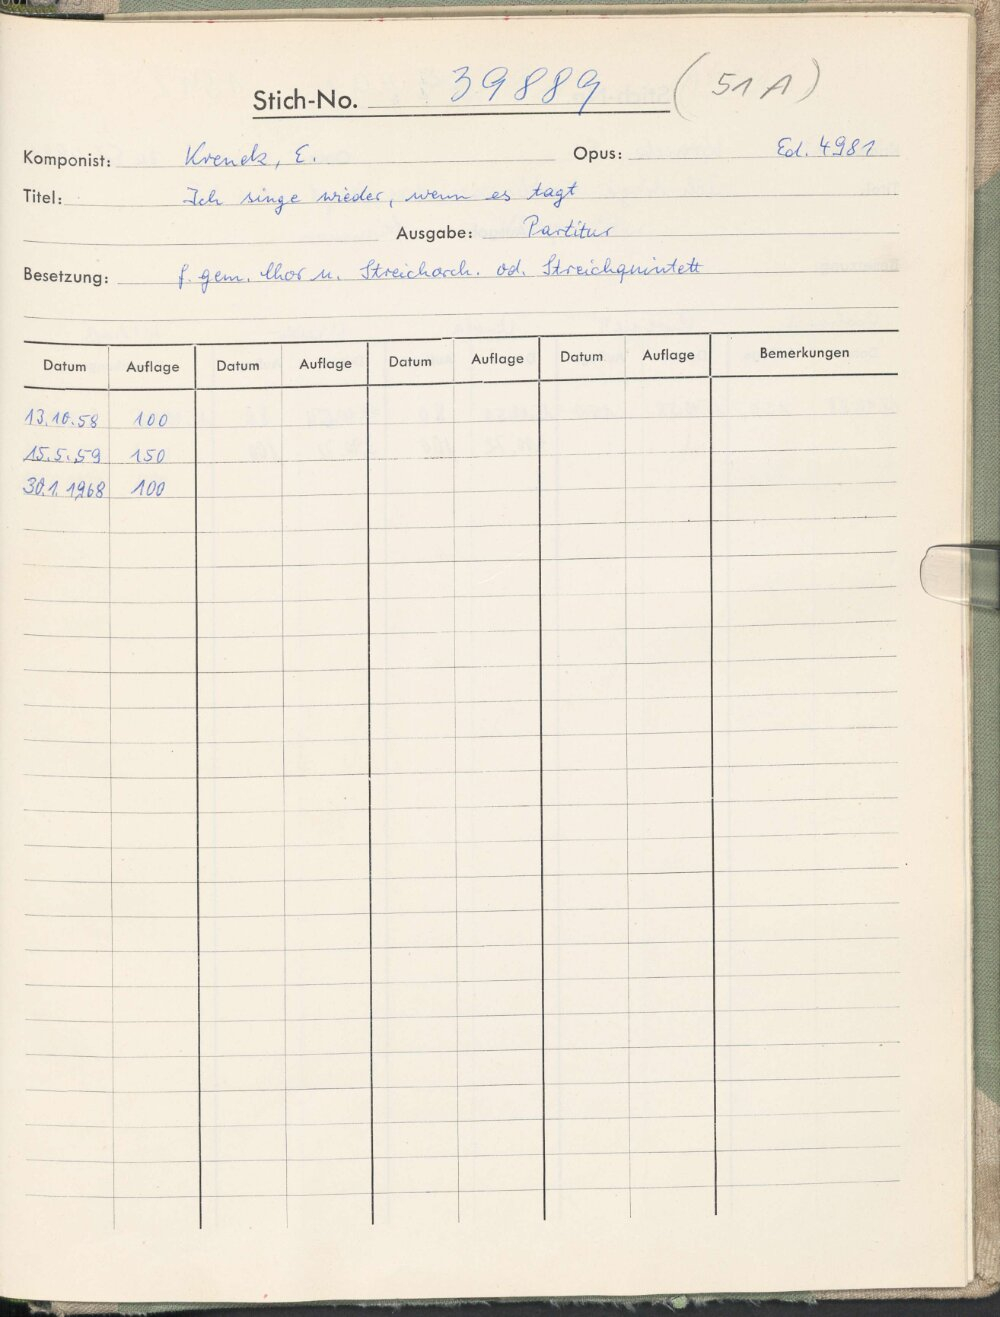 Stich-No. 39889 (51 A)
Komponist: Krenek, E. Opus: Ed. 4981
Titel: Ich singe wieder, wenn es tagt
Ausgabe: Partitur
Besetzung: f. gem. Chor u. Streichorch. od. Streichquintett
Datum Auflage Datum Auflage Datum Auflage Datum Auflage Bemerkungen
13.10.58 100
15.5.59 150
30.1.1968 100